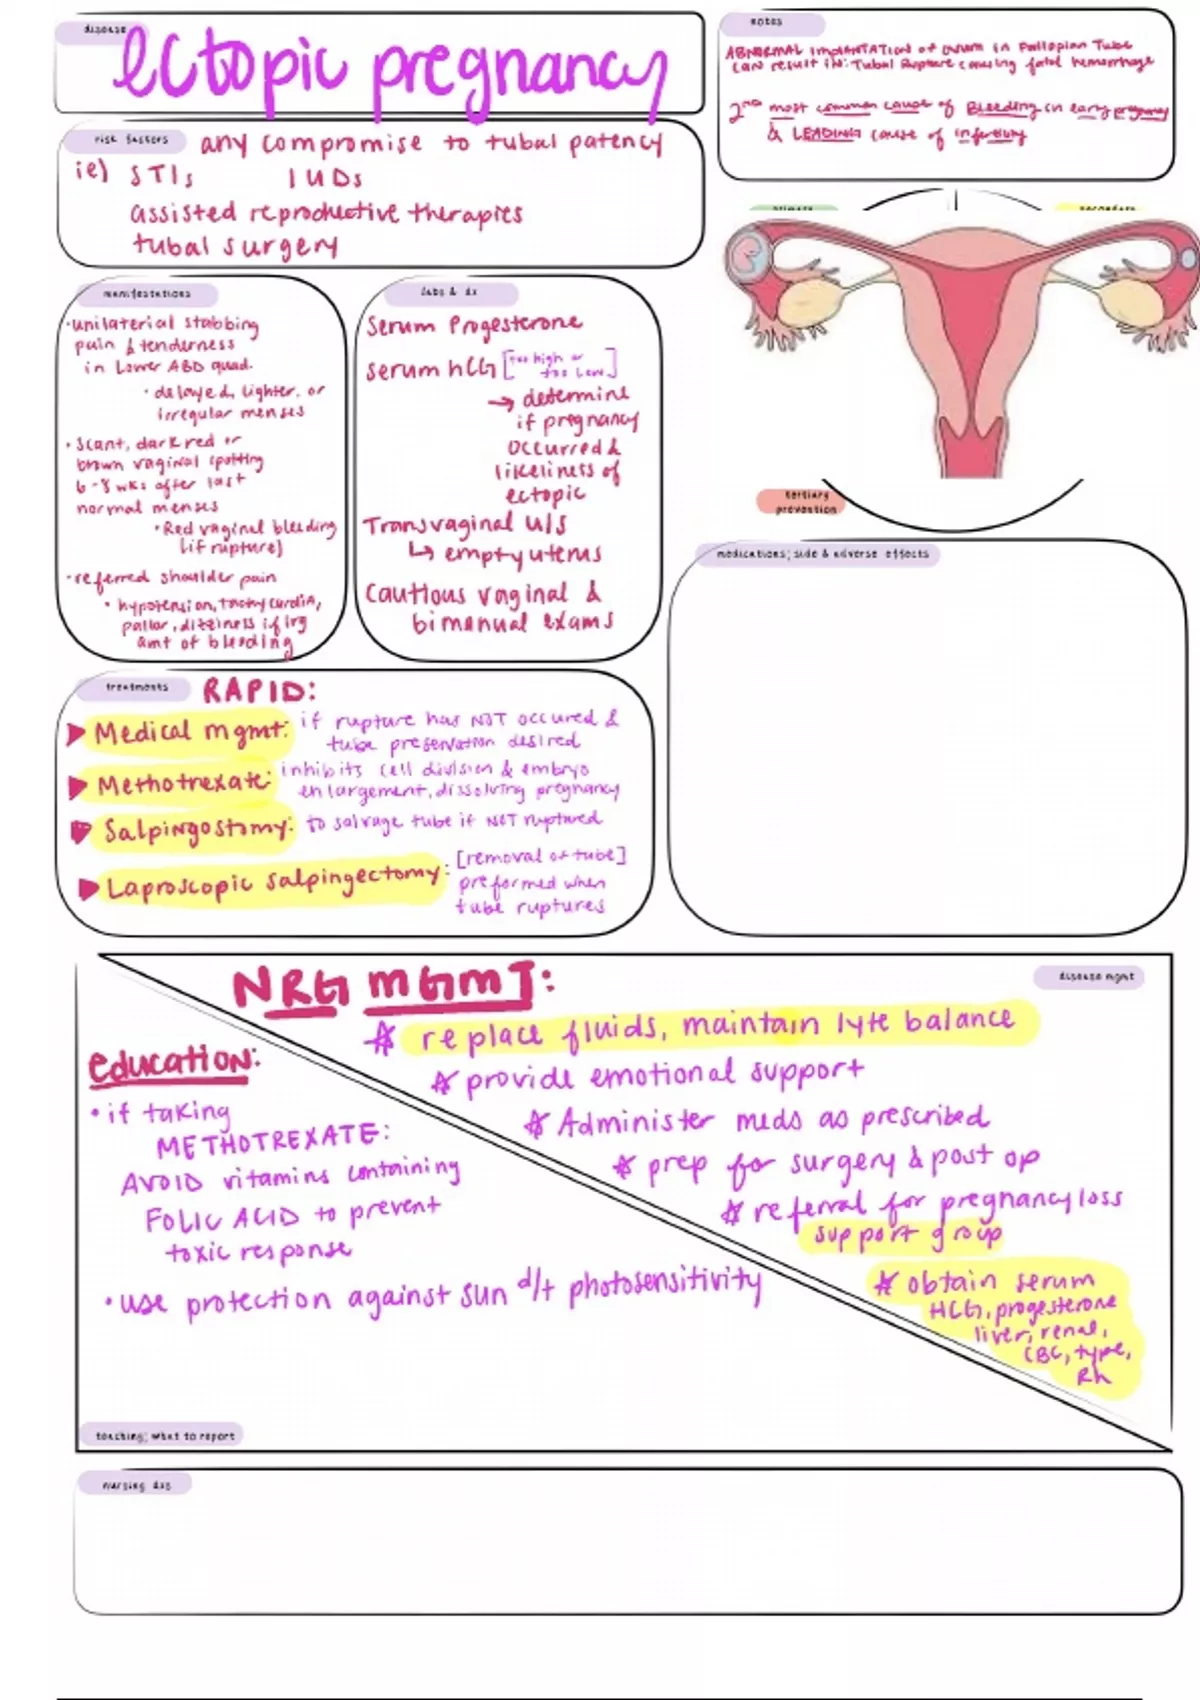 disease
ectopic pregnancy
notes
ABNORMAL implantation of ovum in Fallopian Tube
can result in: Tubal Rupture causing fatal hemorrhage
2nd most common cause of Bleeding in early pregnancy
& LEADING cause of infertility
risk factors
any compromise to tubal patency
ie) STIs IUDs
assisted reproductive therapies
tubal surgery
primary
secondary
tertiary
prevention
manifestations
•unilaterial stabbing
pain & tenderness
in Lower ABD quad.
• delayed, lighter, or
irregular menses
• Scant, dark red or
brown vaginal spotting
6-8 wks after last
normal menses
•Red vaginal bleeding
(if rupture)
•referred shoulder pain
• hypotension, tachycardia,
pallor, dizziness if lrg
amt of bleeding
labs & dx
Serum Progesterone
serum hCG [too high or
too low]
→ determine
if pregnancy
occurred &
likeliness of
ectopic
Transvaginal u/s
↳ empty uterus
Cautious vaginal &
bimanual exams
medications; side & adverse effects
treatments
RAPID:
Medical mgmt: if rupture has NOT occured &
tube preservation desired
Methotrexate: inhibits cell division & embryo
enlargement, dissolving pregnancy
Salpingostomy: to salvage tube if NOT ruptured
Laproscopic salpingectomy: [removal of tube]
preformed when
tube ruptures
NRG MGMT:
disease mgmt
* replace fluids, maintain lyte balance
* provide emotional support
* Administer meds as prescribed
* prep for surgery & post op
* referral for pregnancy loss
support group
* obtain serum
HCG, progesterone
liver, renal,
CBC, type,
Rh
education:
• if taking
METHOTREXATE:
AVOID vitamins containing
FOLIC ACID to prevent
toxic response
• use protection against sun d/t photosensitivity
teaching; what to report
nursing dxs